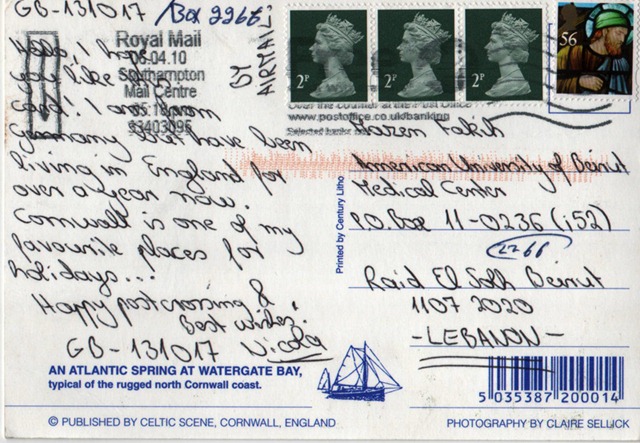 GB-131017
/Box 2266
Hello, I hope
you like the
card! I am from
Germany but have been
living in England for
over a year now.
Cornwall is one of my
favourite places for
holidays...
Happy postcrossing &
Best wishes!
GB-131017 Nicola
Royal Mail
06.04.10
Southampton
Mail Centre
05:18pm
33403096
BY
AIRMAIL
2P
2P
2P
56
Over the counter at the Post Office
www.postoffice.co.uk/banking
Selected banks only
Hazem Fakih
American University of Beirut
Medical Center
P.O. Box 11-0236 (i52)
2266
Raid El Solh Beirut
1107 2020
-LEBANON-
Printed by Century Litho
AN ATLANTIC SPRING AT WATERGATE BAY,
typical of the rugged north Cornwall coast.
5 035387 200014
© PUBLISHED BY CELTIC SCENE, CORNWALL, ENGLAND
PHOTOGRAPHY BY CLAIRE SELLICK